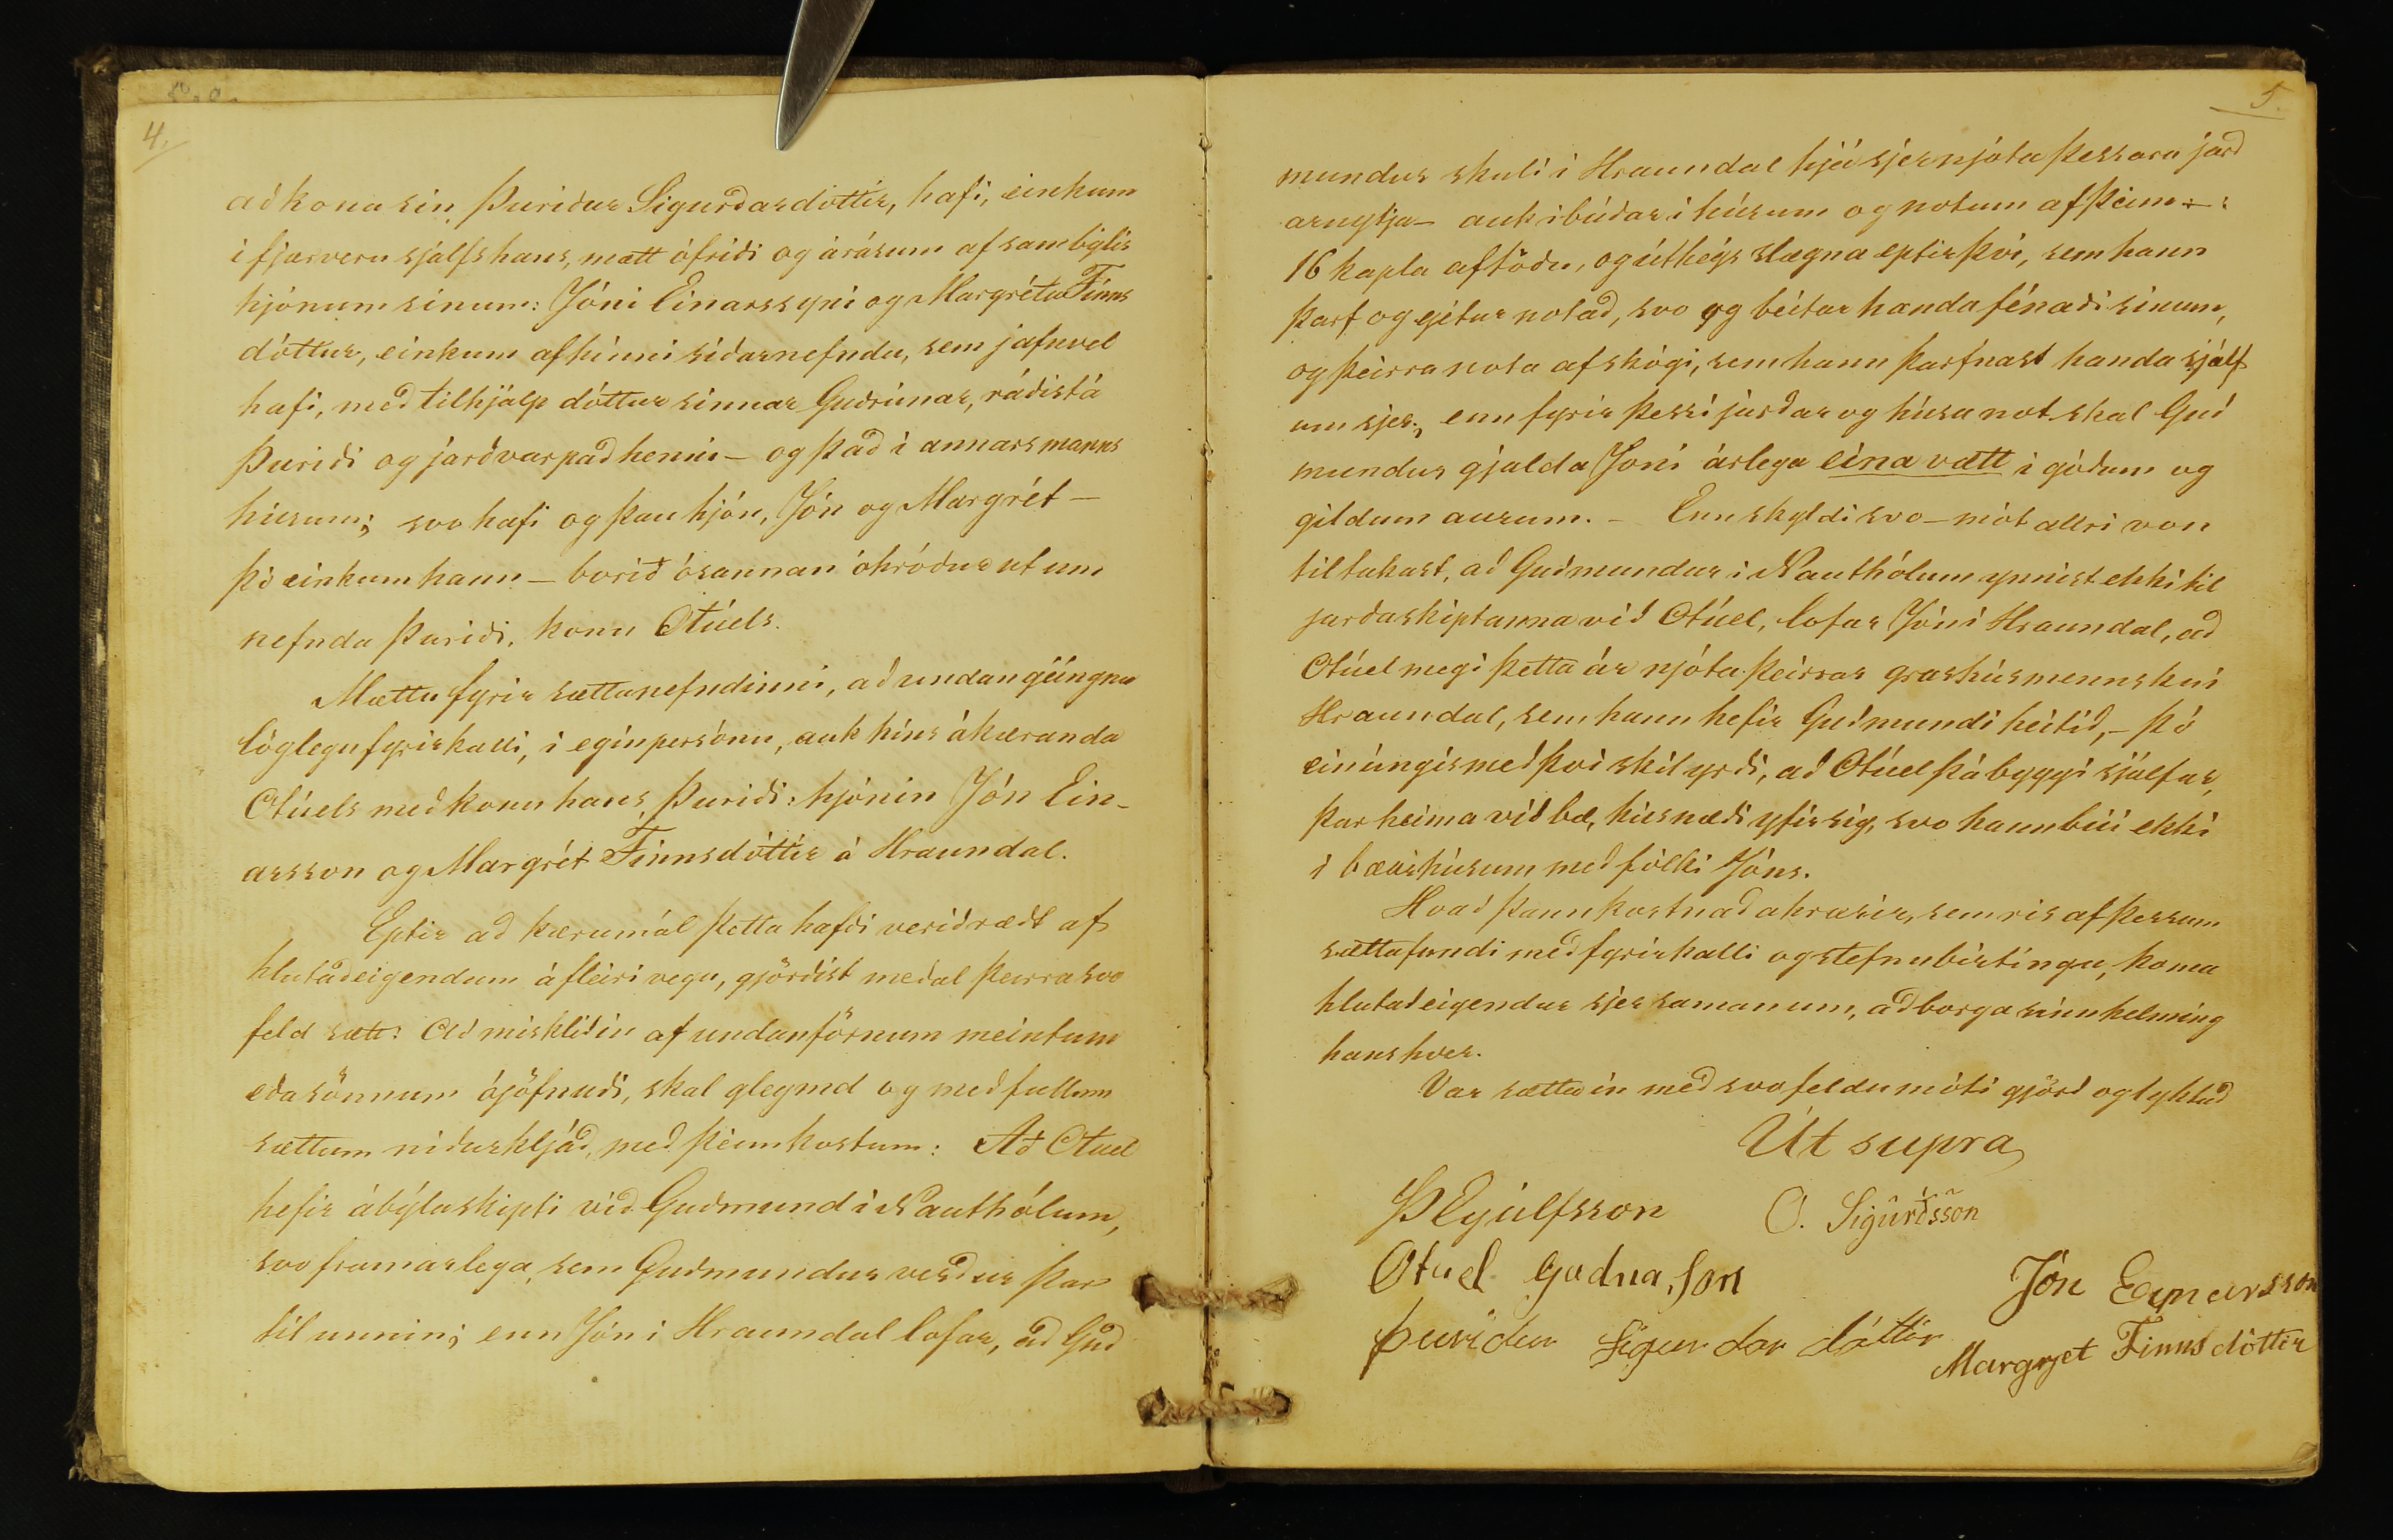 4.
að kona sin, Þuriður Sigurðardóttir, hafi, einkum
i fjærveru sjálfs hans, mætt ófriði og árásum af sambýlis
hjónum sinum: Jóni Einarssyni og Margrétu Finns
dóttur, einkum af hinni siðarnefndu, sem jafnvel
hafi, með tilhjálp dóttur sinnar Guðrúnar, ráðist á
Þuriði og jarðvarpað henni – og það i annars manns
húsum; svo hafi og þau hjón, Jón og Margrét –
þó einkum hann – borið ósannan óhróður ut um
nefnda Þuriði, konu Otúels.
Mættu fyrir sættanefndinni, að undangéingnu
löglegu fyrirkalli, i eginpersónu, auk hins ákæranda
Otúels með konu hans, Þuriði: hjónin Jón Ein-
arsson og Margrét Finnsdóttir á Hraundal.
Eptir að kærumál þetta hafði verið rædt af
hlutaðeigendum á fleiri vegu, gjörðist meðal þeirra svo
feld sætt: Að misklíðin af undanförnum meintum
eða sönnum ójöfnuði, skal gleymd og með fullum
sættum niðurkljáð, með þeim kostum: Að Otuel
hefir ábýlaskipti við Guðmund i Nauthólum,
svo framarlega, sem Guðmundur verður þar
til unnin; enn Jón i Hraundal lofar, að Guð
5.
mundur skuli i Hraundal hjá sjer njóta þessara jarð
arnytja – auk ibúðar i húsum og notum af þeim –:
16 kapla af töðu, og úthéys slægna eptir því, sem hann
þarf og getur notað, svo og béitar handa fénaði sinum,
og þeirra nota af skógi, sem hann þarfnast handa sjálf
um sjer; enn fyrir þessi jarðar og húsa not skal Guð
mundur gjalda Jóni árlega eina vætt i góðum og
gildum aurum. – Enn skyldi svo – mót allri von
til takast, að Guðmundur i Nauthólum ynnist ekki til
jarðaskiptanna við Otúel, lofar Jón i Hraundal, að
Otúel megi þetta ár njóta þeirrar grashúsmennsku i
Hraundal, sem hann hefir Guðmundi héitið, – þó
einúngis með þvi skilyrði, að Otúel þá byggi sjálfur,
þar heima við bæ, húsnæði yfir sig, svo hann búi ekki
i bæarhúsum með fólki Jóns.
Hvað þann kostnað áhrærir, sem ris af þessum
sættafundi með fyrirkalli og stefnubirtingu, koma
hlutaðeigendur sjer saman um, að borga sinn helming
hans hver.
Var sættin með svofeldu móti gjörð og lyktuð
Út supra
Þ Eyúlfsson O. Sigurðsson
Otuel Gudna,son Jón Eynarsson
þuriður Sigurdar dóttir Margrjet Finnsdóttir